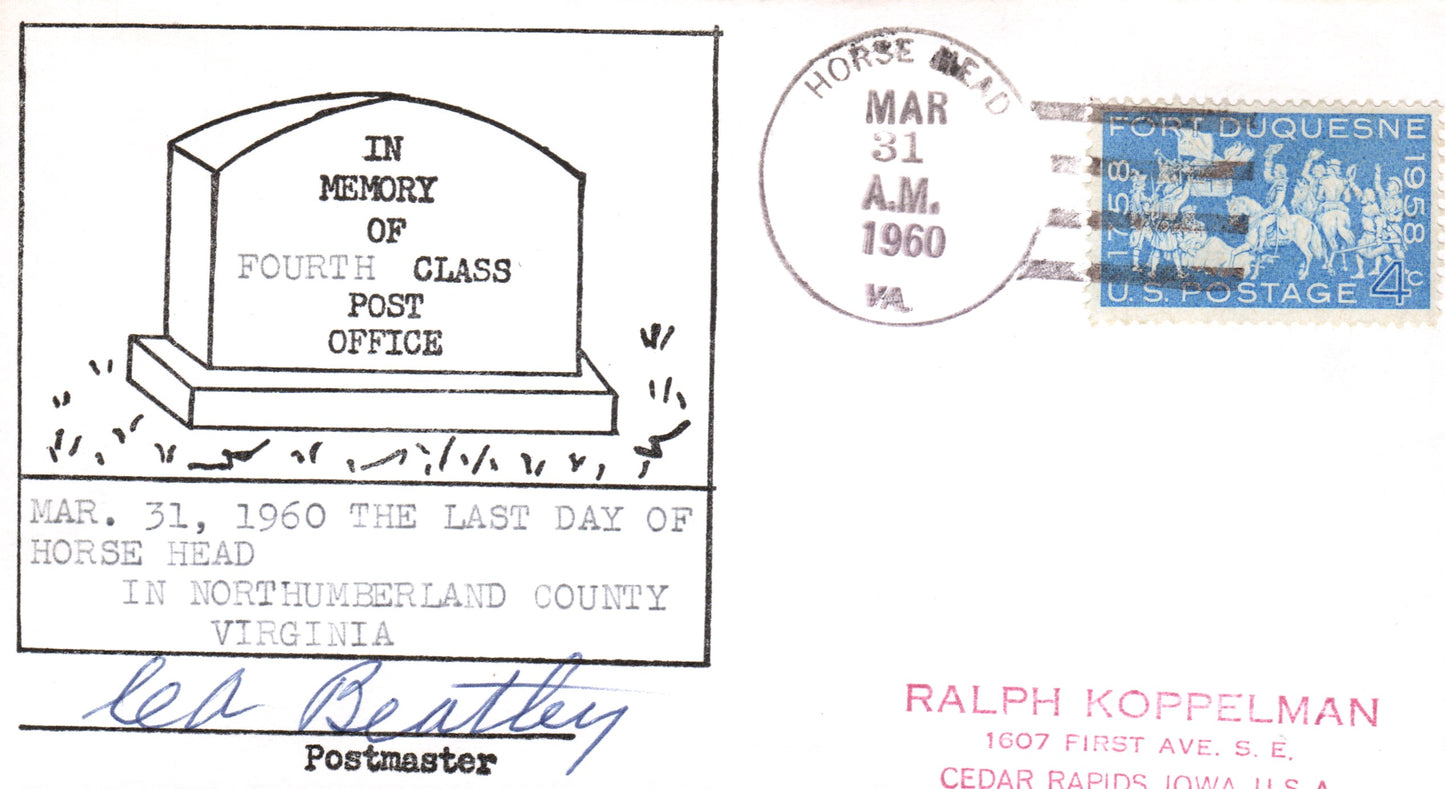 IN
MEMORY
OF
FOURTH CLASS
POST
OFFICE
MAR. 31, 1960 THE LAST DAY OF
HORSE HEAD
IN NORTHUMBERLAND COUNTY
VIRGINIA
Beatley
Postmaster
HORSE HEAD
MAR
31
A.M.
1960
VA.
FORT DUQUESNE
1758
1958
U.S. POSTAGE 4c
RALPH KOPPELMAN
1607 FIRST AVE. S. E.
CEDAR RAPIDS, IOWA, U.S.A.